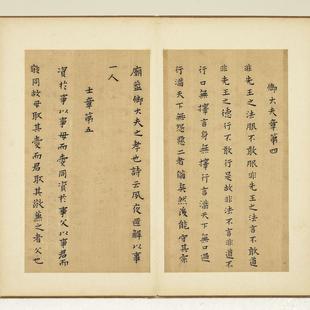 卿大夫章第四
非先王之法服不敢服非先王之法言不敢道
非先王之德行不敢行是故非法不言非道不
行口無擇言身無擇行言滿天下無口過
行滿天下無怨惡三者備矣然後能守其宗
廟蓋卿大夫之孝也詩云夙夜匪懈以事
一人
士章第五
資於事以事母而愛同資於事父以事君而
敬同故母取其愛而君取其敬兼之者父也